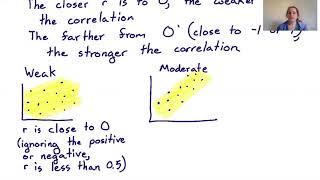 The closer r is to 0, the weaker
the correlation
The farther from 0 (close to -1 or
the stronger the correlation
Weak
Moderate
r is close to 0
(ignoring the positive
or negative,
r is less than 0.5)